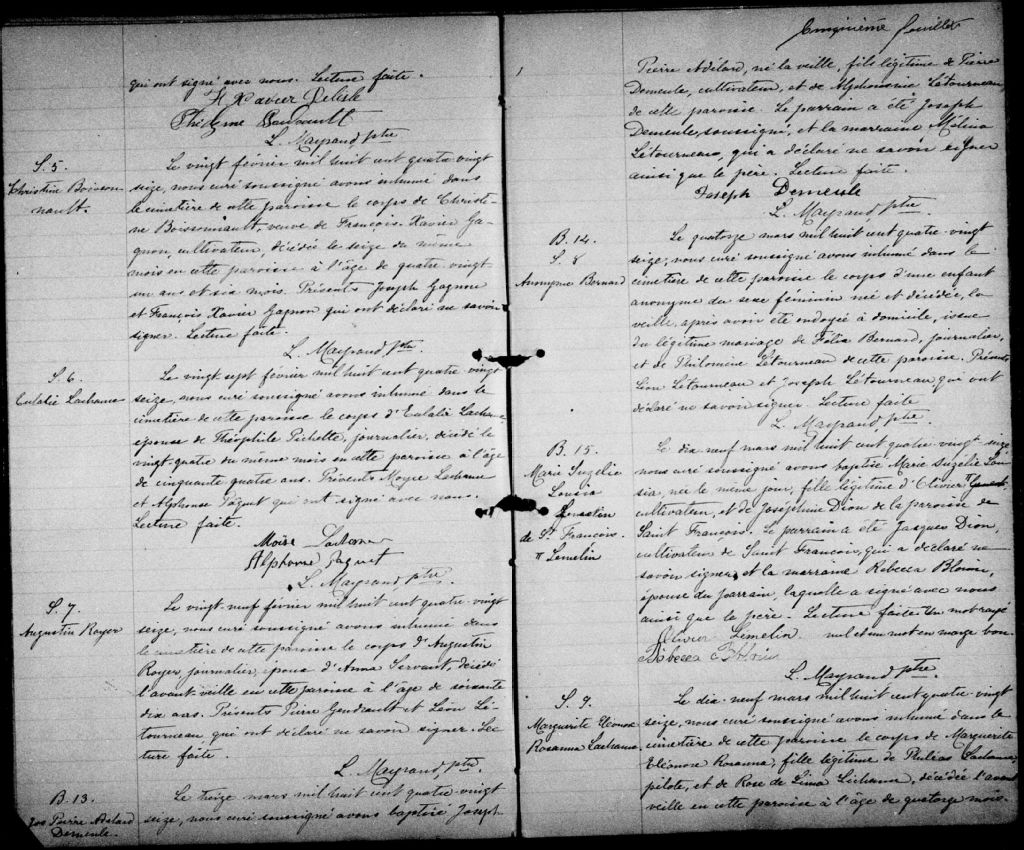 qui ont signé avec nous. Lecture faite.
F Xavier Delisle
L. Mayrand ptre
S. 5.
Christine Boisson-
nault.
Le vingt février mil huit cent quatre vingt
seize, nous curé soussigné avons inhumé dans
le cimetière de cette paroisse le corps de Christi-
ne Boissonnault, veuve de François Xavier Ga-
gnon, cultivateur, décédée le seize du même
mois en cette paroisse à l'âge de quatre-vingt-
un ans et six mois. Présents Joseph Gagnon
et François Xavier Gagnon qui ont déclaré ne savoir
signer. Lecture faite.
L. Mayrand ptre.
S. 6.
Eulalie Lachance
Le vingt sept février mil huit cent quatre vingt
seize, nous curé soussigné avons inhumé dans le
cimetière de cette paroisse le corps d'Eulalie Lachance
épouse de Théophile Pichette, journalier, décédé le
vingt-quatre du même mois en cette paroisse à l'âge
de cinquante quatre ans. Présents Moyse Lachance
et Alphonse Paquet qui ont signé avec nous.
Lecture faite.
Moïse Lachance
Alphonse Paquet
L. Mayrand, ptre.
S. 7.
Augustin Royer
Le vingt-neuf février mil huit cent quatre vingt
seize, nous curé soussigné avons inhumé dans
le cimetière de cette paroisse le corps d'Augustin
Royer journalier, époux d'Anna Servant, décédé
l'avant veille en cette paroisse à l'âge de soixante
dix ans. Présents Pierre Gendreault et Léon Lé-
tourneau, qui ont déclaré ne savoir signer. Lec-
ture faite.
L. Mayrand, ptre.
B. 13.
Jos Pierre Adélard
Demeule.
Le treize mars mil huit cent quatre vingt
seize, nous curé soussigné avons baptisé Joseph
Cinquième feuillet
Pierre Adélard, né la veille, fils légitime de Pierre
Demeule, cultivateur, et de Alphonsine Létourneau
de cette paroisse. Le parrain a été Joseph
Demeule, soussigné, et la marraine Mélina
Létourneau, qui a déclaré ne savoir signer
ainsi que le père. Lecture faite.
Joseph Demeule
L. Mayrand ptre.
B. 14.
S. 8
Anonyme Bernard
Le quatorze mars mil huit cent quatre-vingt
seize, nous curé soussigné avons inhumé dans le
cimetière de cette paroisse le corps d'une enfant
anonyme du sexe féminin née et décédée, la
veille, après avoir été ondoyée à domicile, issue
du légitime mariage de Félix Bernard, journalier,
et de Philomène Létourneau de cette paroisse. Présents
Léon Létourneau et Joseph Létourneau qui ont
déclaré ne savoir signer. Lecture faite
L. Mayrand ptre.
B. 15.
Marie Suzélie
Lousia
de St François.
π Lemelin
Le dix neuf mars mil huit cent quatre-vingt seize
nous curé soussigné avons baptisé Marie Suzélie Lou-
sia, née le même jour, fille légitime d'Olivier
cultivateur, et de Joséphine Dion de la paroisse de
Saint François. Le parrain a été Jacques Dion,
cultivateur de Saint François, qui a déclaré ne
savoir signer, et la marraine Rebecca Blouin,
épouse du parrain, laquelle a signé avec nous
ainsi que le père. Lecture faite Un mot rayé
nul et un mot en marge bon.
Olivier Lemelin
Rébecca Blouin
L. Mayrand ptre.
S. 9.
Marguerite Eléonore
Rosanna Lachance
Le dix-neuf mars mil huit cent quatre vingt
seize, nous curé soussigné avons inhumé dans le
cimetière de cette paroisse le corps de Marguerite
Eléonore Rosanna, fille légitime de Philéas Lachance,
pilote, et de Rose de Lima Lachance, décédée l'avant
veille en cette paroisse à l'âge de quatorze mois.